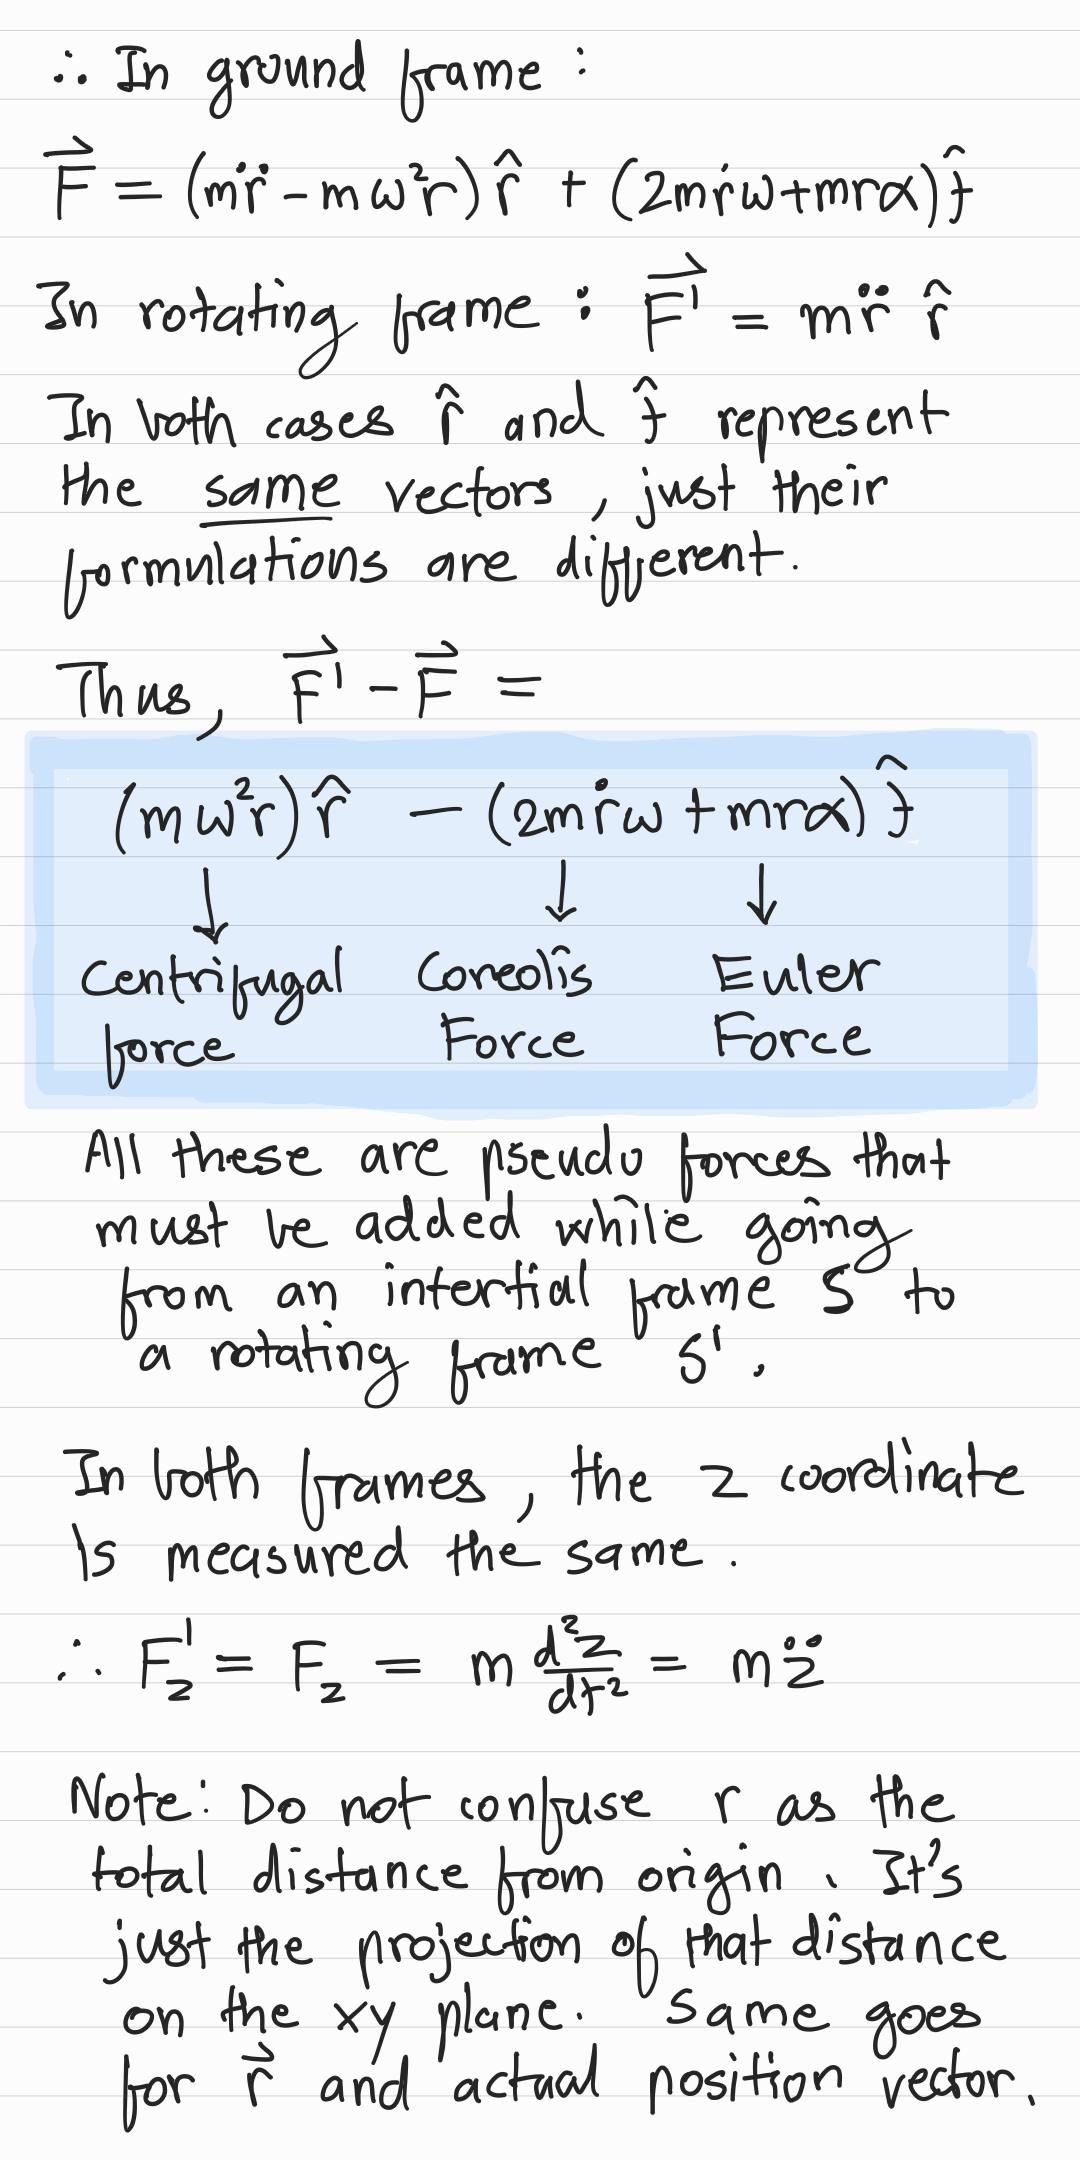 ∴ In ground frame :
F⃗ = (mr̈ - mω²r) r̂ + (2mṙω + mrα) t̂
In rotating frame : F⃗' = mr̈ r̂
In both cases r̂ and t̂ represent
the same vectors , just their
formulations are different.
Thus, F⃗' - F⃗ =
(mω²r) r̂ - (2mṙω + mrα) t̂
↓ ↓ ↓
Centrifugal Coreolis Euler
force Force Force
All these are pseudo forces that
must be added while going
from an intertial frame S to
a rotating frame S' .
In both frames , the z coordinate
is measured the same .
∴ F'z = Fz = m d²z/dt² = mz̈
Note: Do not confuse r as the
total distance from origin . It's
just the projection of that distance
on the xy plane. Same goes
for r⃗ and actual position vector.